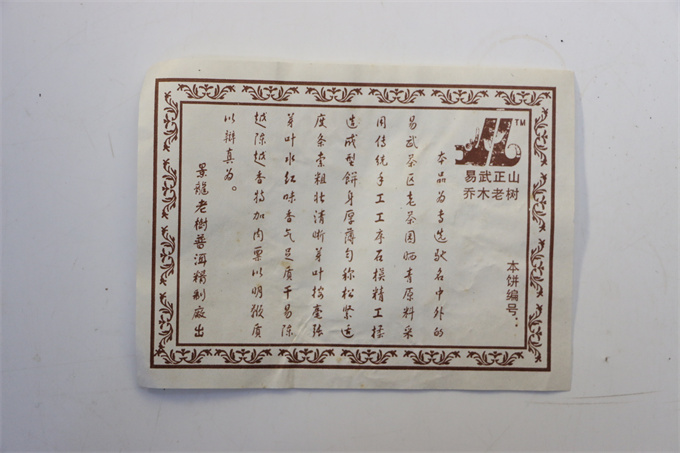 TM
易武正山
乔木老树
本饼编号：
本品为专选驰名中外的
易武茶区老茶园晒青原料采
用传统手工工序石模精工揉
造成型餅身厚薄匀称松紧适
度条索粗壮清晰芽叶按毫张
芽叶水红味香气足质干易陈
越陈越香特加内票以明质
以辩真为。
景龍老樹普洱精制廠出